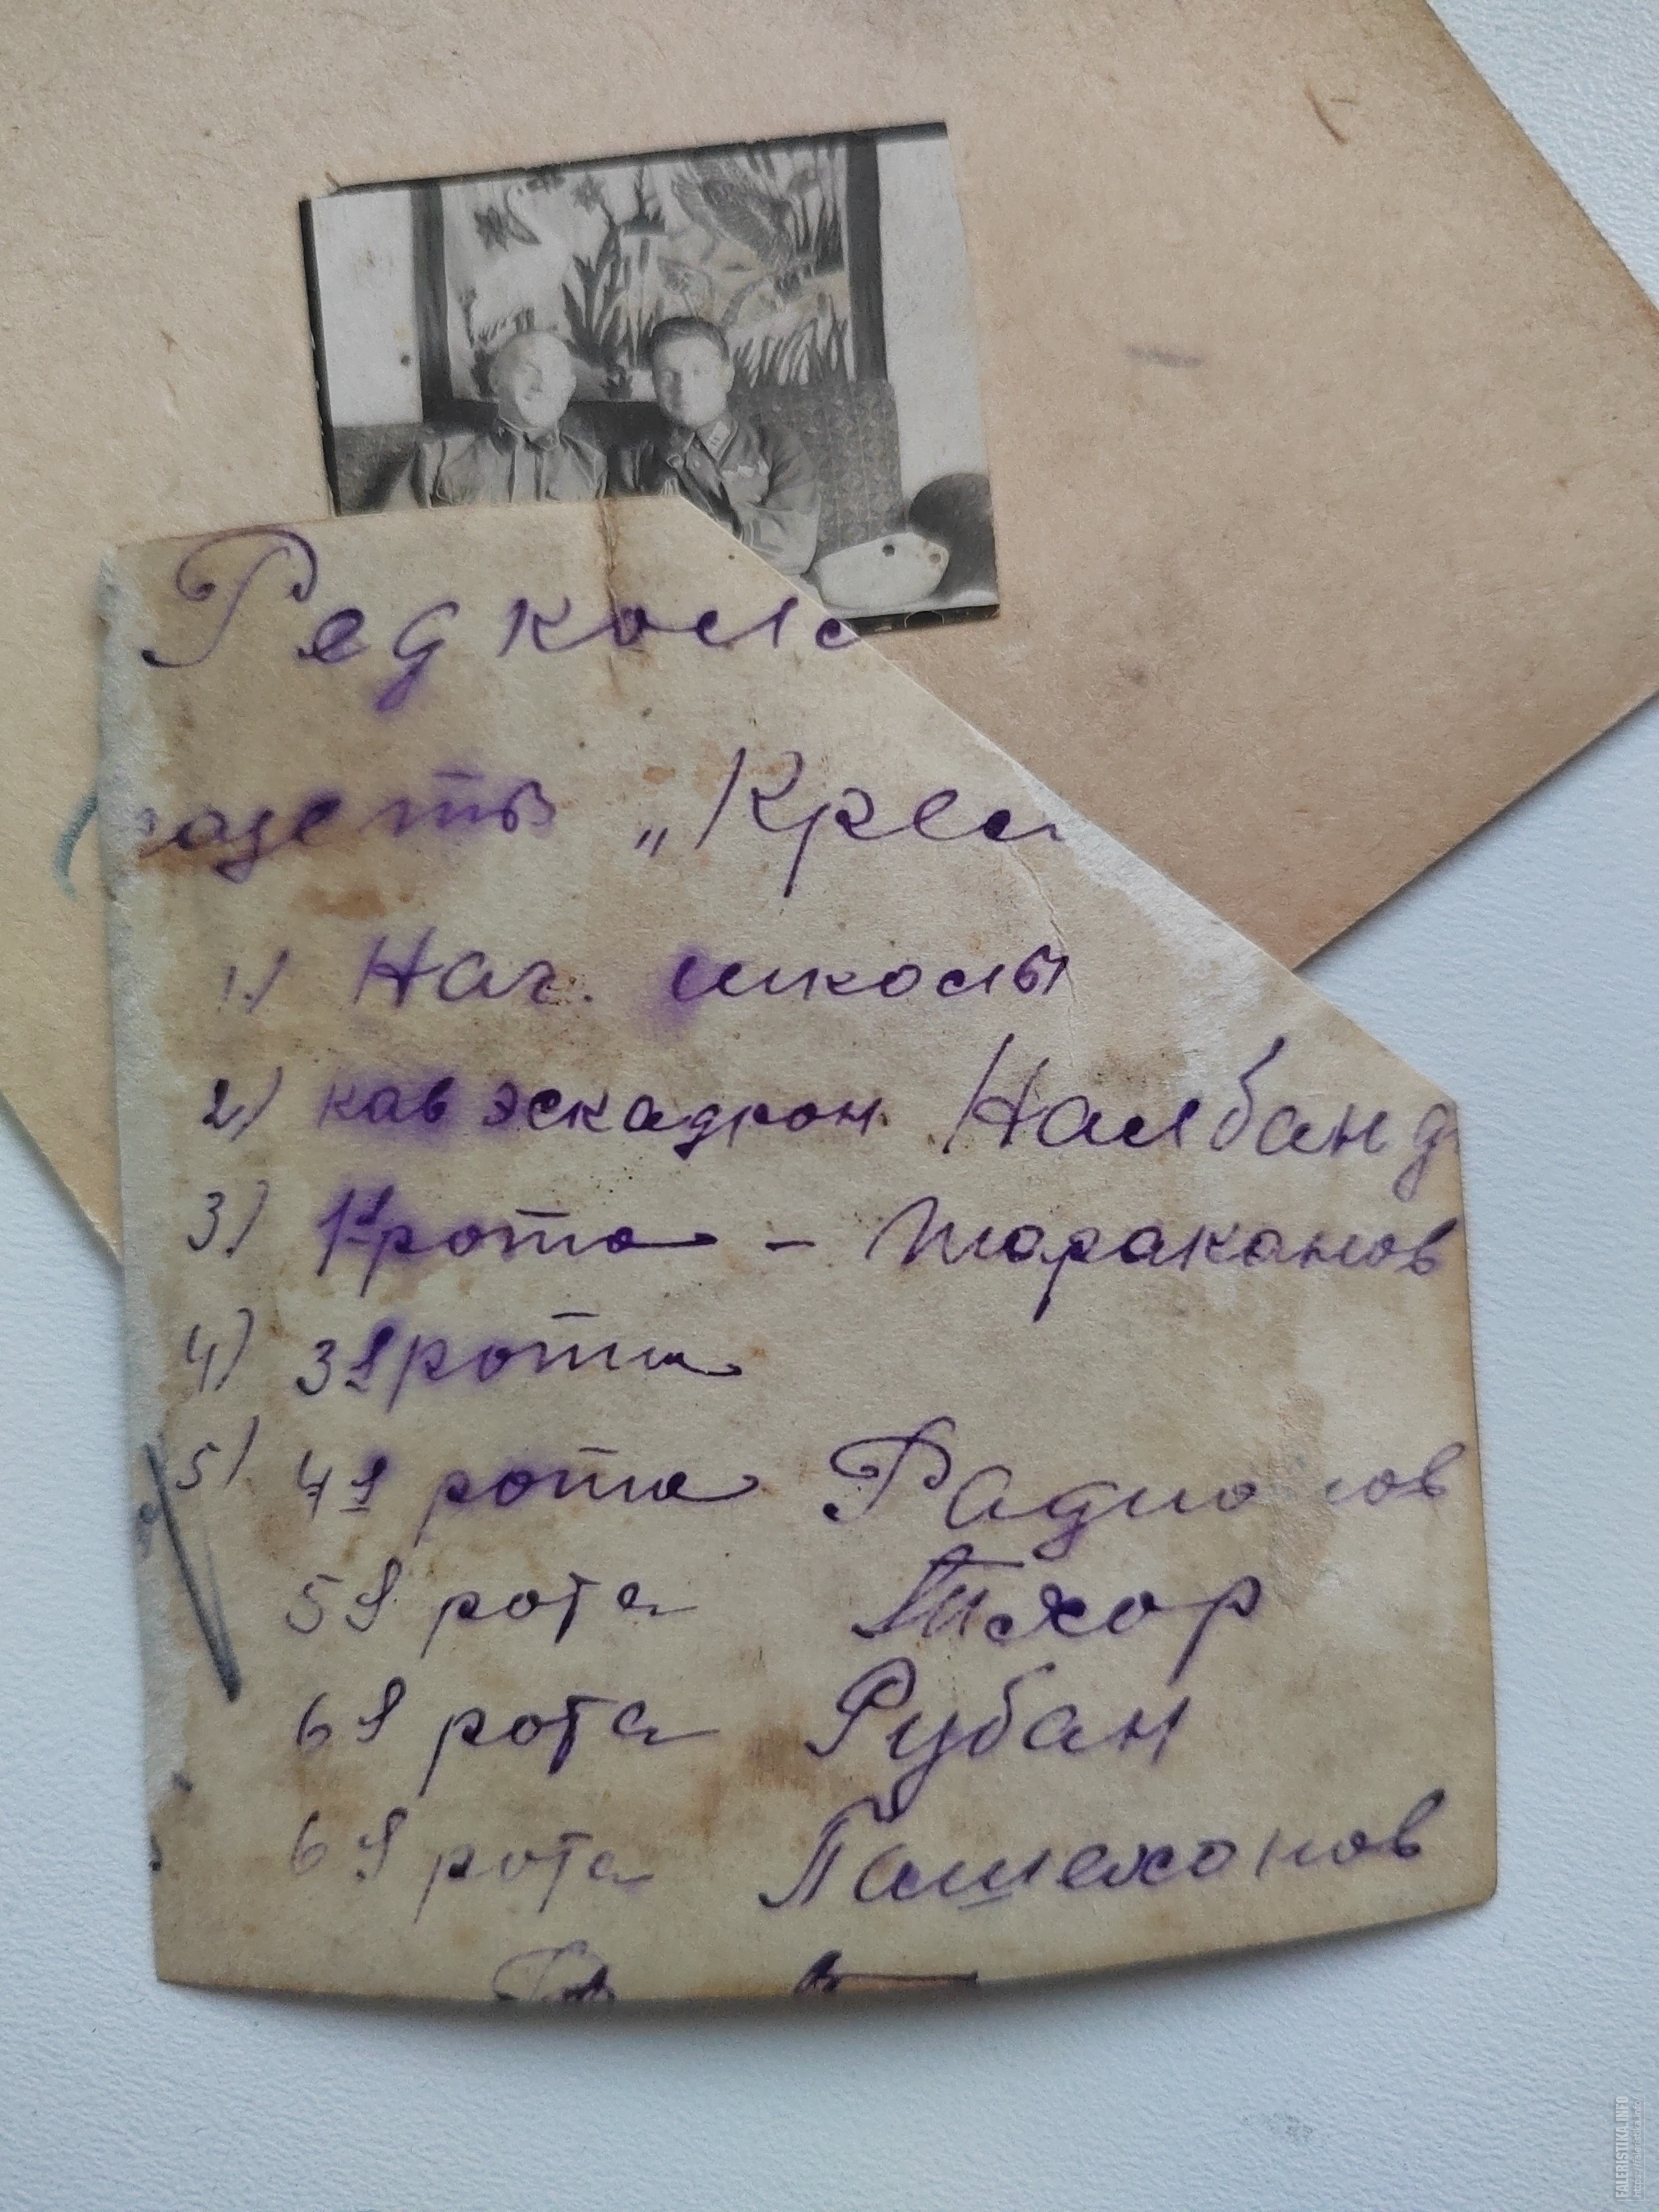 Редкол
газеты „Крем
1) Нач. школы
2) кав эскадрон Налбанд
3) 1я рота - Тараканов
4) 3я рота
5) 4я рота Радионов
5я рота Тхор
6я рота Рубан
6я рота Пашехонов
FALERISTIKA.INFO